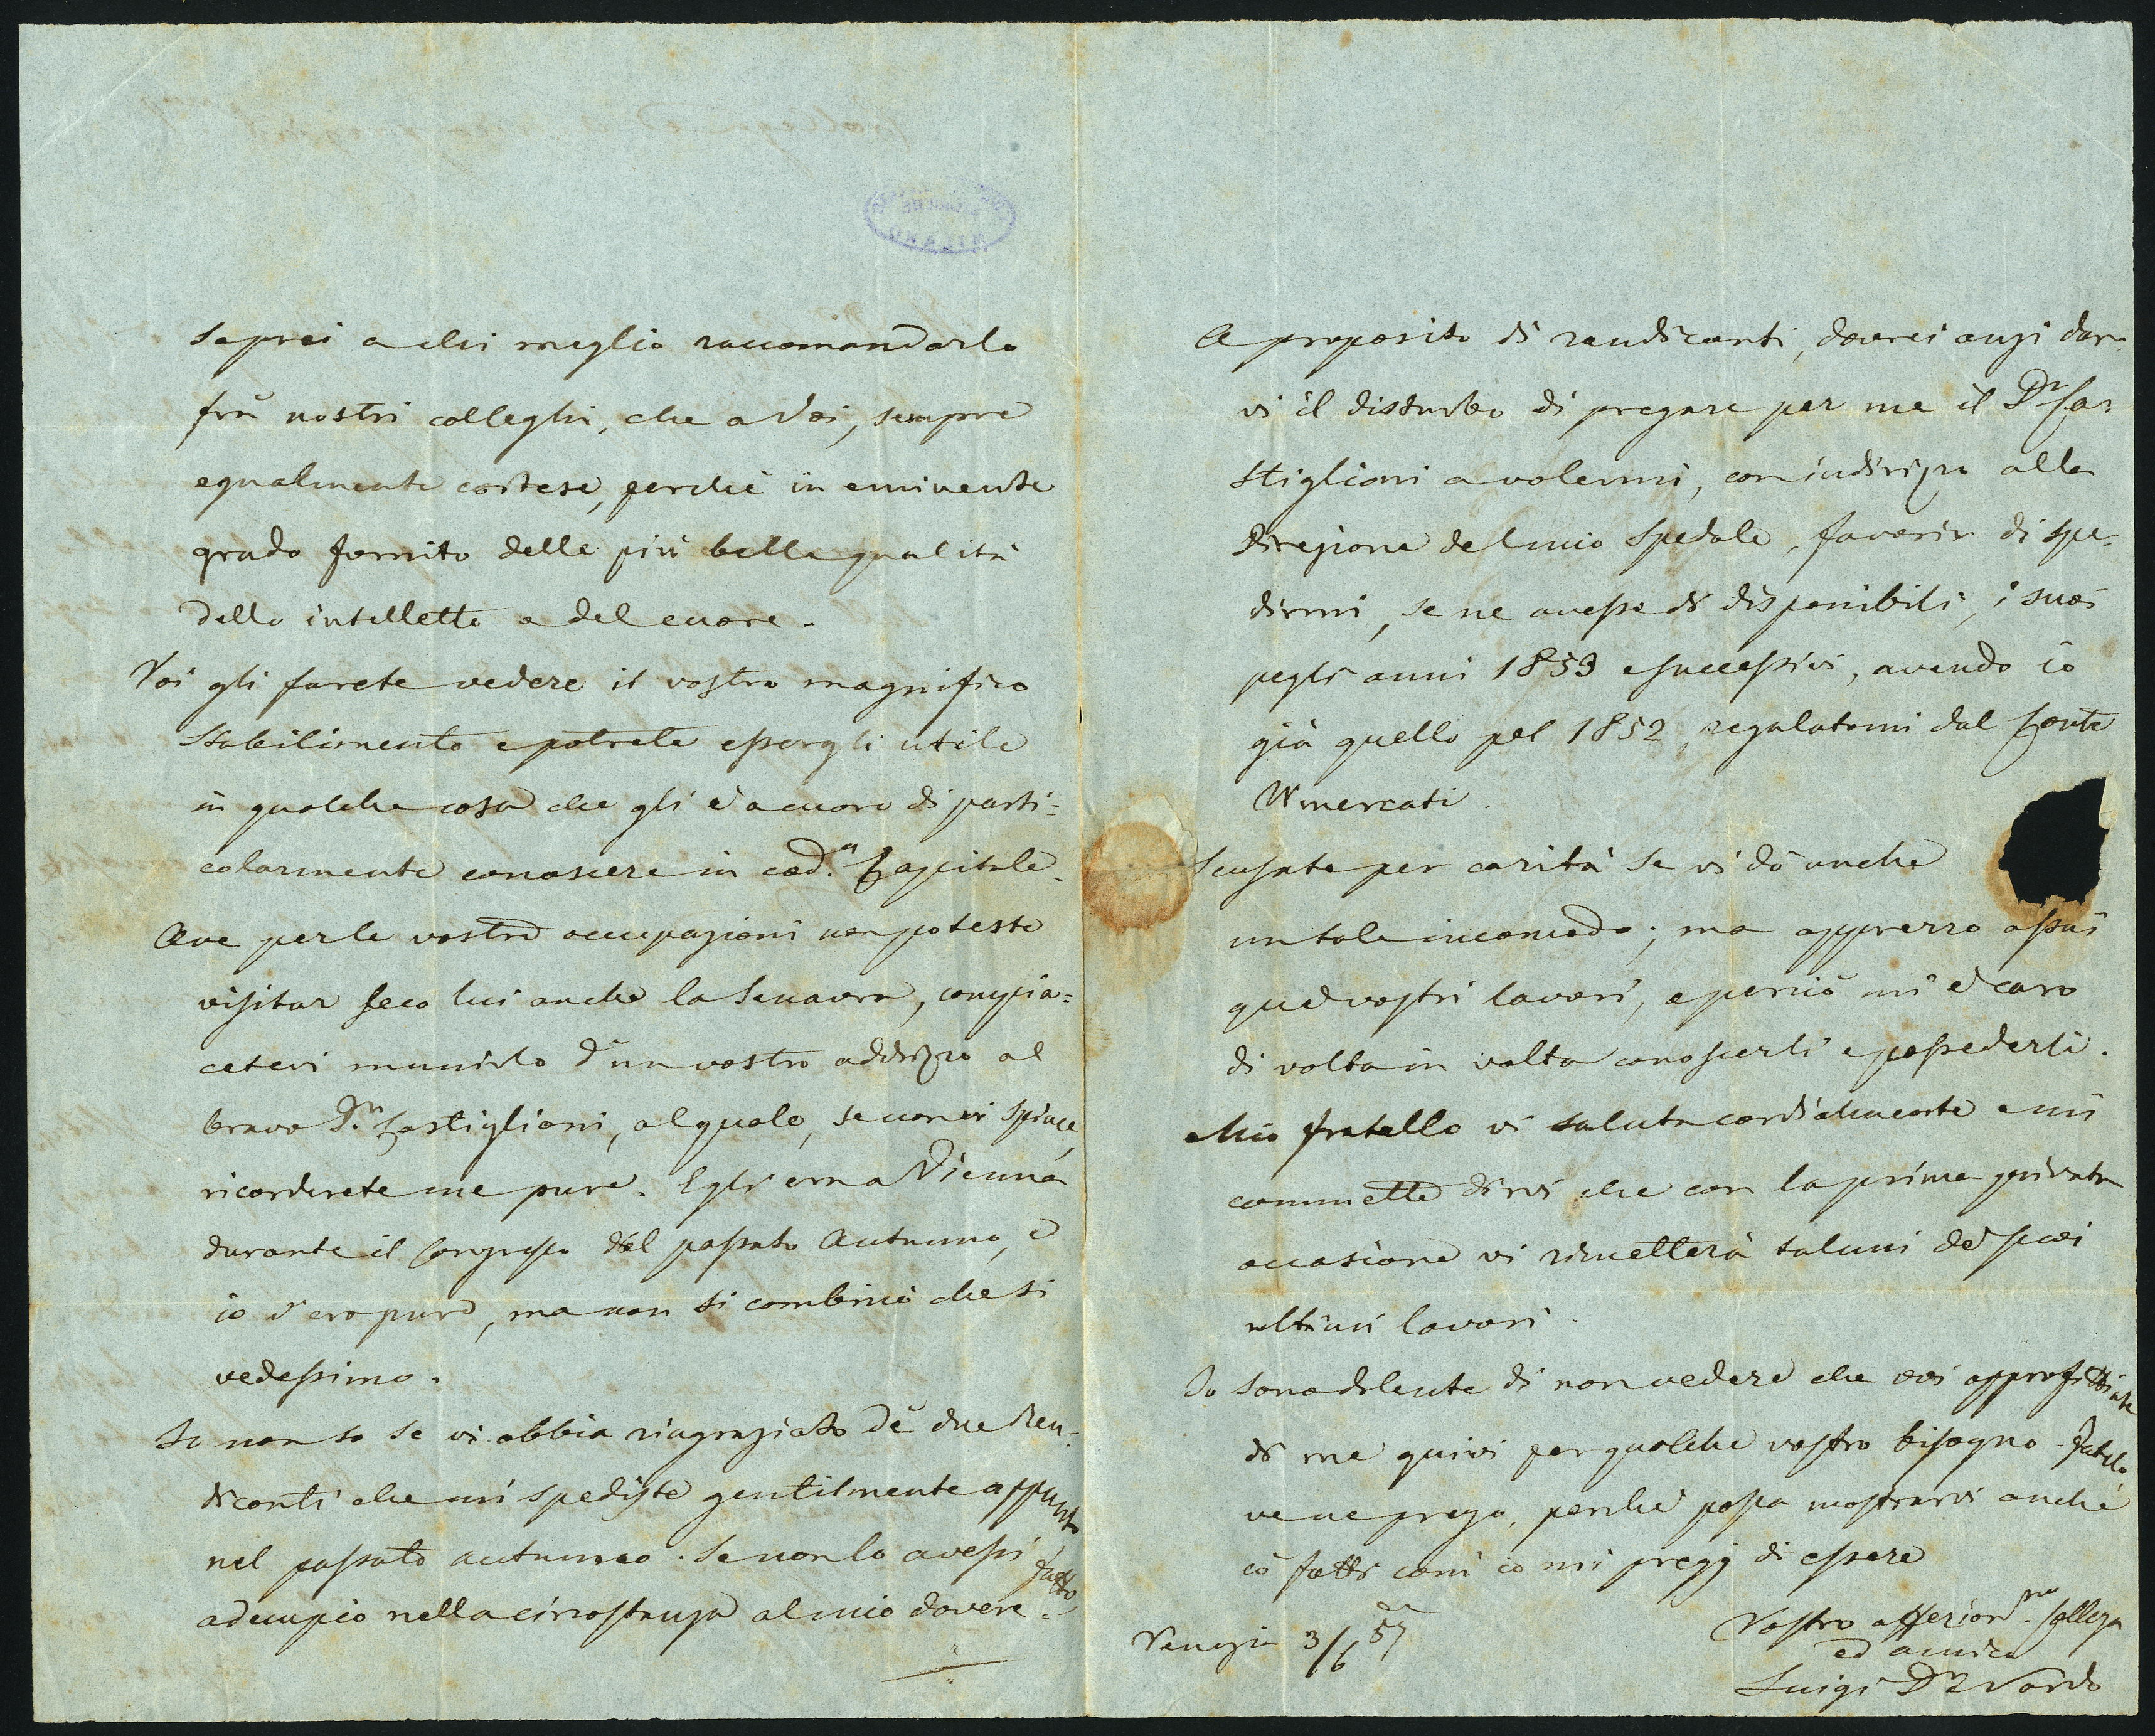 saprei a chi meglio raccomandarlo
frà nostri colleghi, che a Voi, sempre
egualmente cortese, perchè in eminente
grado fornito delle più belle qualità
dello intelletto e del cuore.
Voi gli farete vedere il vostro magnifico
Stabilimento e potrete essergli utile
in qualche cosa che gli è a cuore di parti=
colarmente conoscere in cod.a Capitale.
Ove per le vostre occupazioni non poteste
visitar seco lui anche la Senavra, compia=
cetevi munirlo d'un vostro addrizzo al
bravo D.r Castiglioni, al quale, se non vi spiace,
ricorderete me pure. Egli era a Vienna
durante il Congresso del passato Autunno, e
io v'ero pure, ma non si combinò che si
vedessimo.
Io non so se vi abbia ringraziato de' due Ren=
diconti che mi spediste gentilmente appunto
nel passato autunno. Se non lo avessi fatto
adempio nella circostanza al mio dovere.
A proposito di rendiconti, dovrei anzi dar=
vi il disturbo di pregare per me il Dr Ca=
stiglioni a volermi, con indirizzo alla
Direzione del mio Spedale, favorir di spe=
dirmi, se ne avesse di disponibili, i suoi
pegli anni 1853 e successivi, avendo io
già quello pel 1852, regalatomi dal Conte
Wmercati.
Scusate per carità se vi dò anche
un tale incomodo; ma apprezzo assai
que' vostri lavori, e perciò mi è caro
di volta in volta conoscerli e possederli.
Mio fratello vi saluta cordialmente e mi
commette dirvi che con la prima privata
occasione vi rimetterà taluni de' suoi
ultimi lavori.
Io sono dolente di non vedere che voi approfittiate
di me quivi per qualche vostro bisogno. Fatelo
ve ne prego, perchè possa mostrarvi anche
co' fatti com' io mi pregj di essere
Vostro affezion.mo Collega
ed amico
Luigi Dr Nardo
Venezia 3/6 57